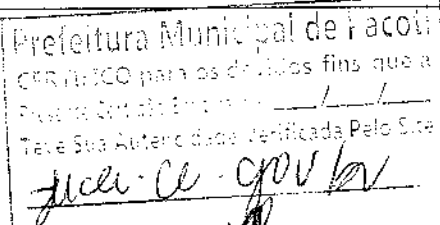 Prefeitura Municipal de Pacoti
CERTIFICO para os devidos fins que a
___/___/___
Teve Sua Autenticidade Verificada Pelo Site
jucec.ce.gov.br